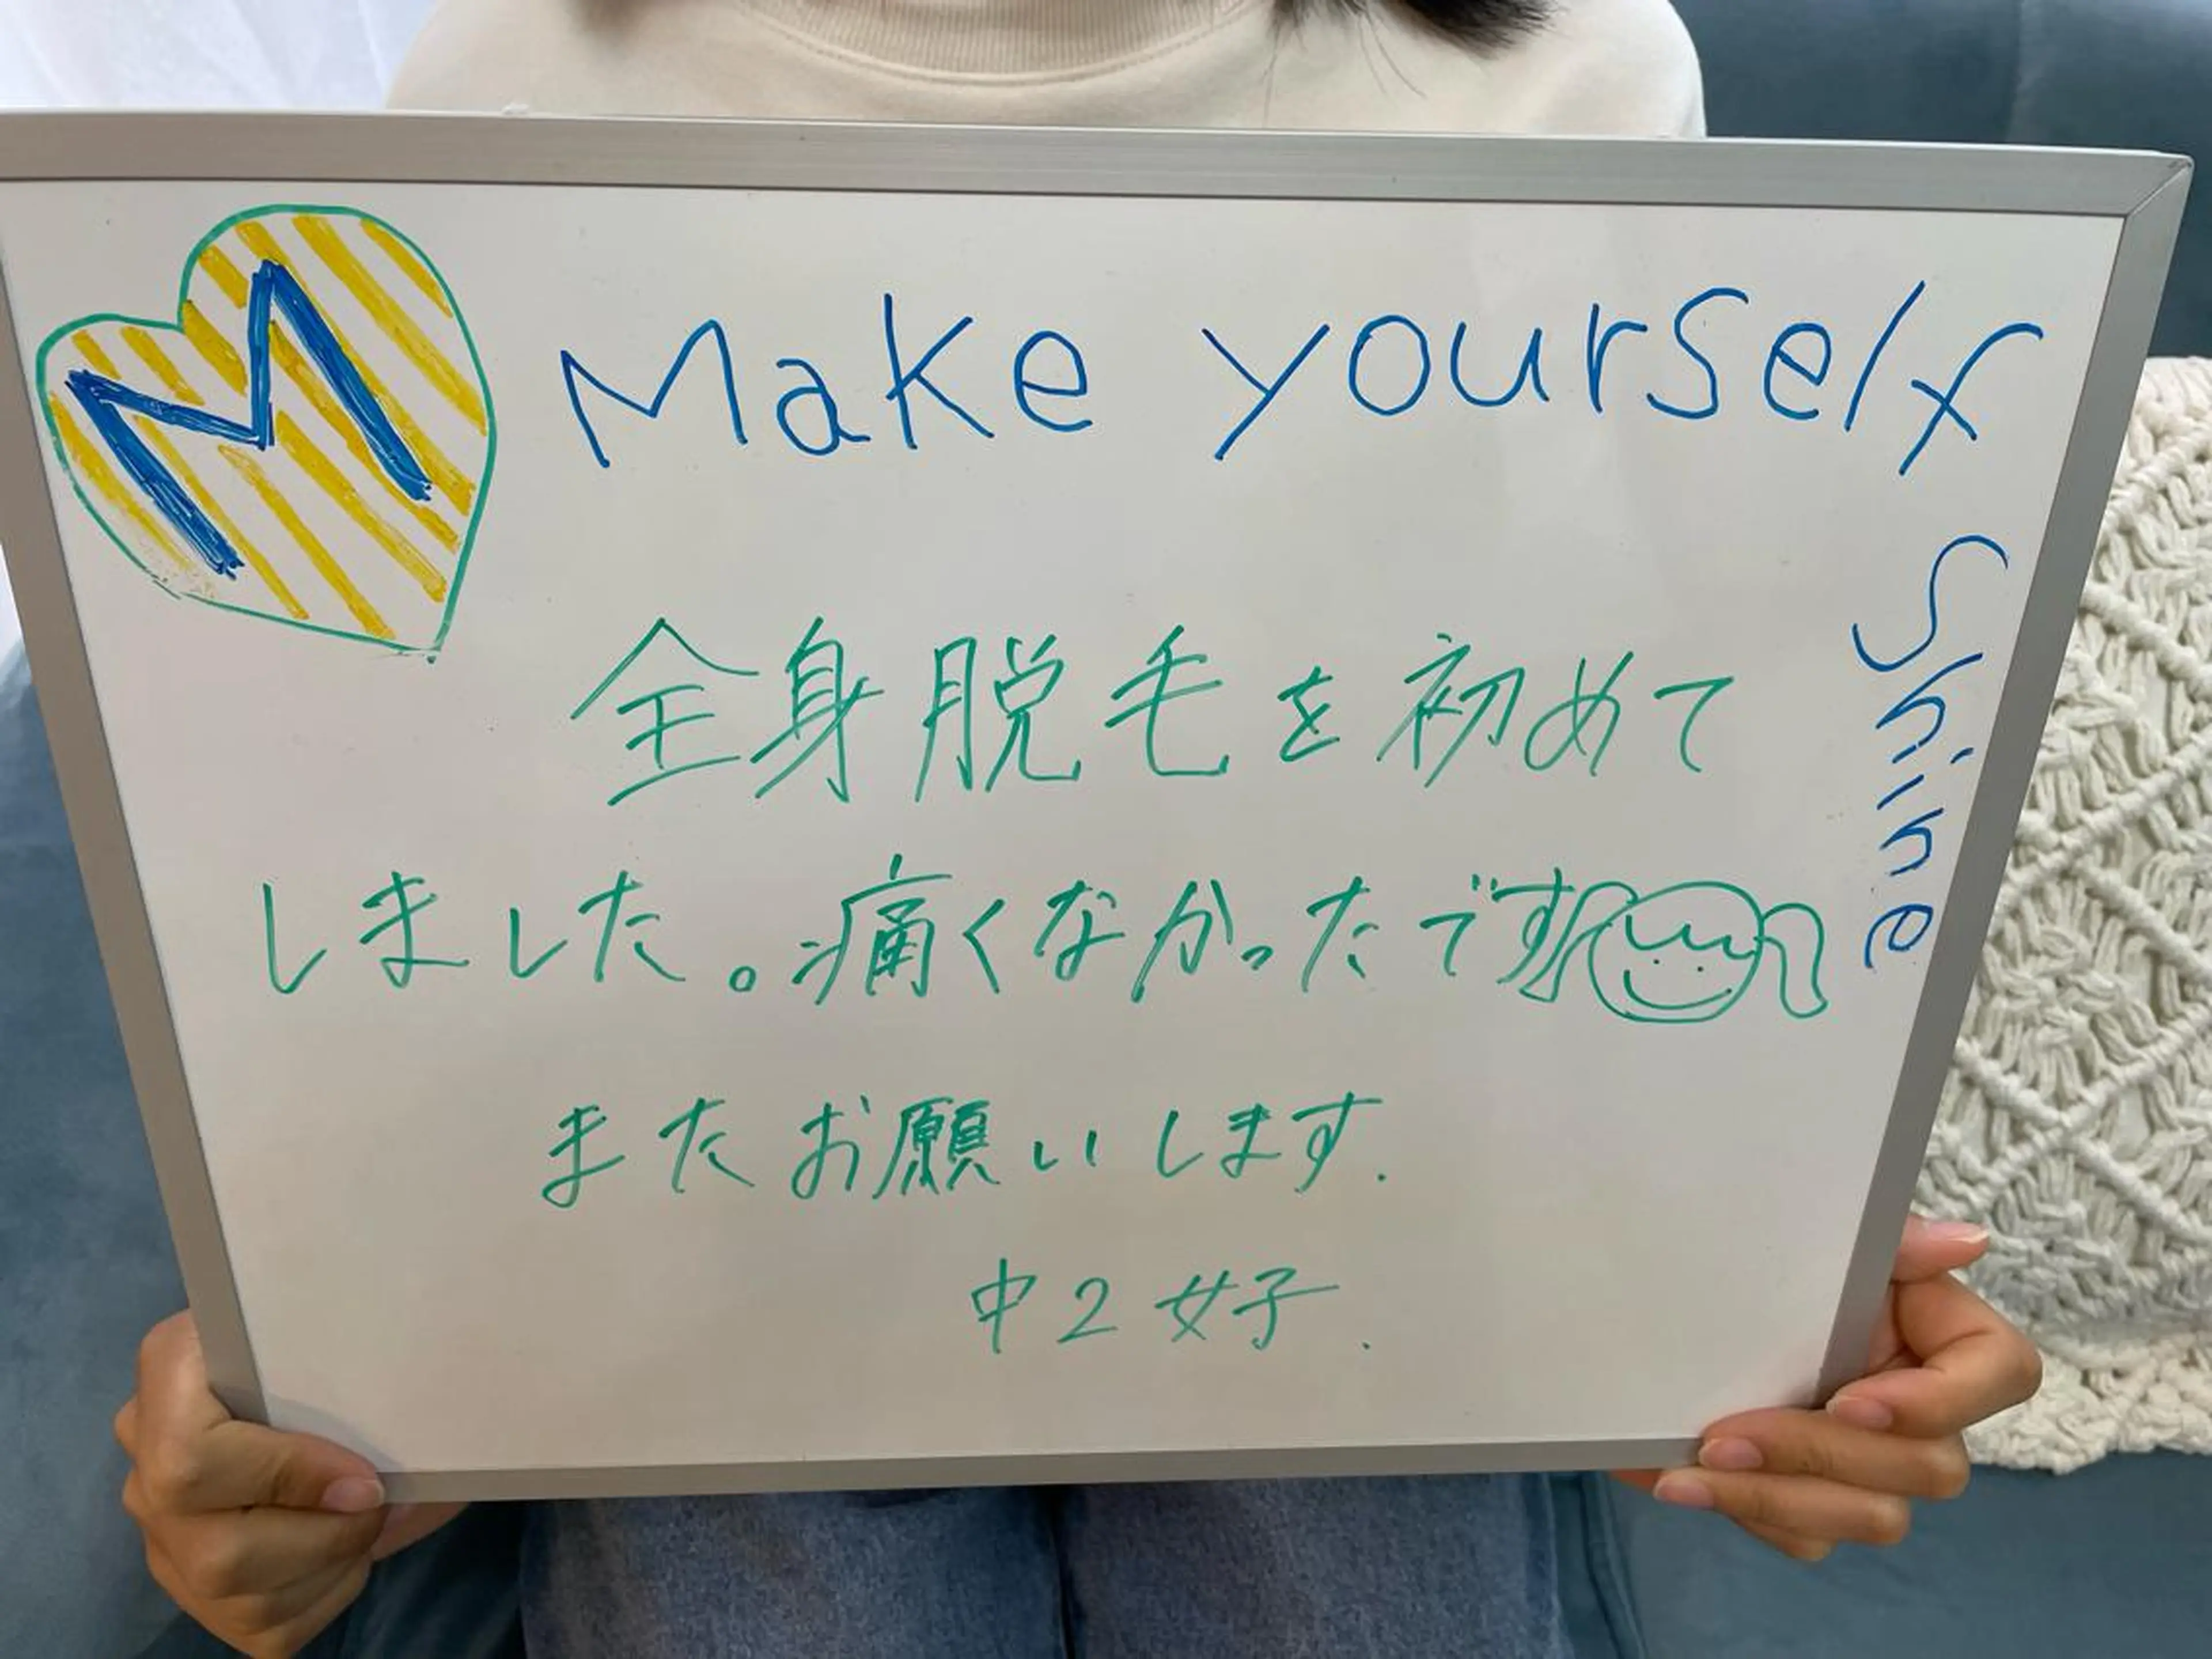 M
Make yourself
Shine
全身脱毛を初めて
しました。痛くなかったです
またお願いします.
中2女子.